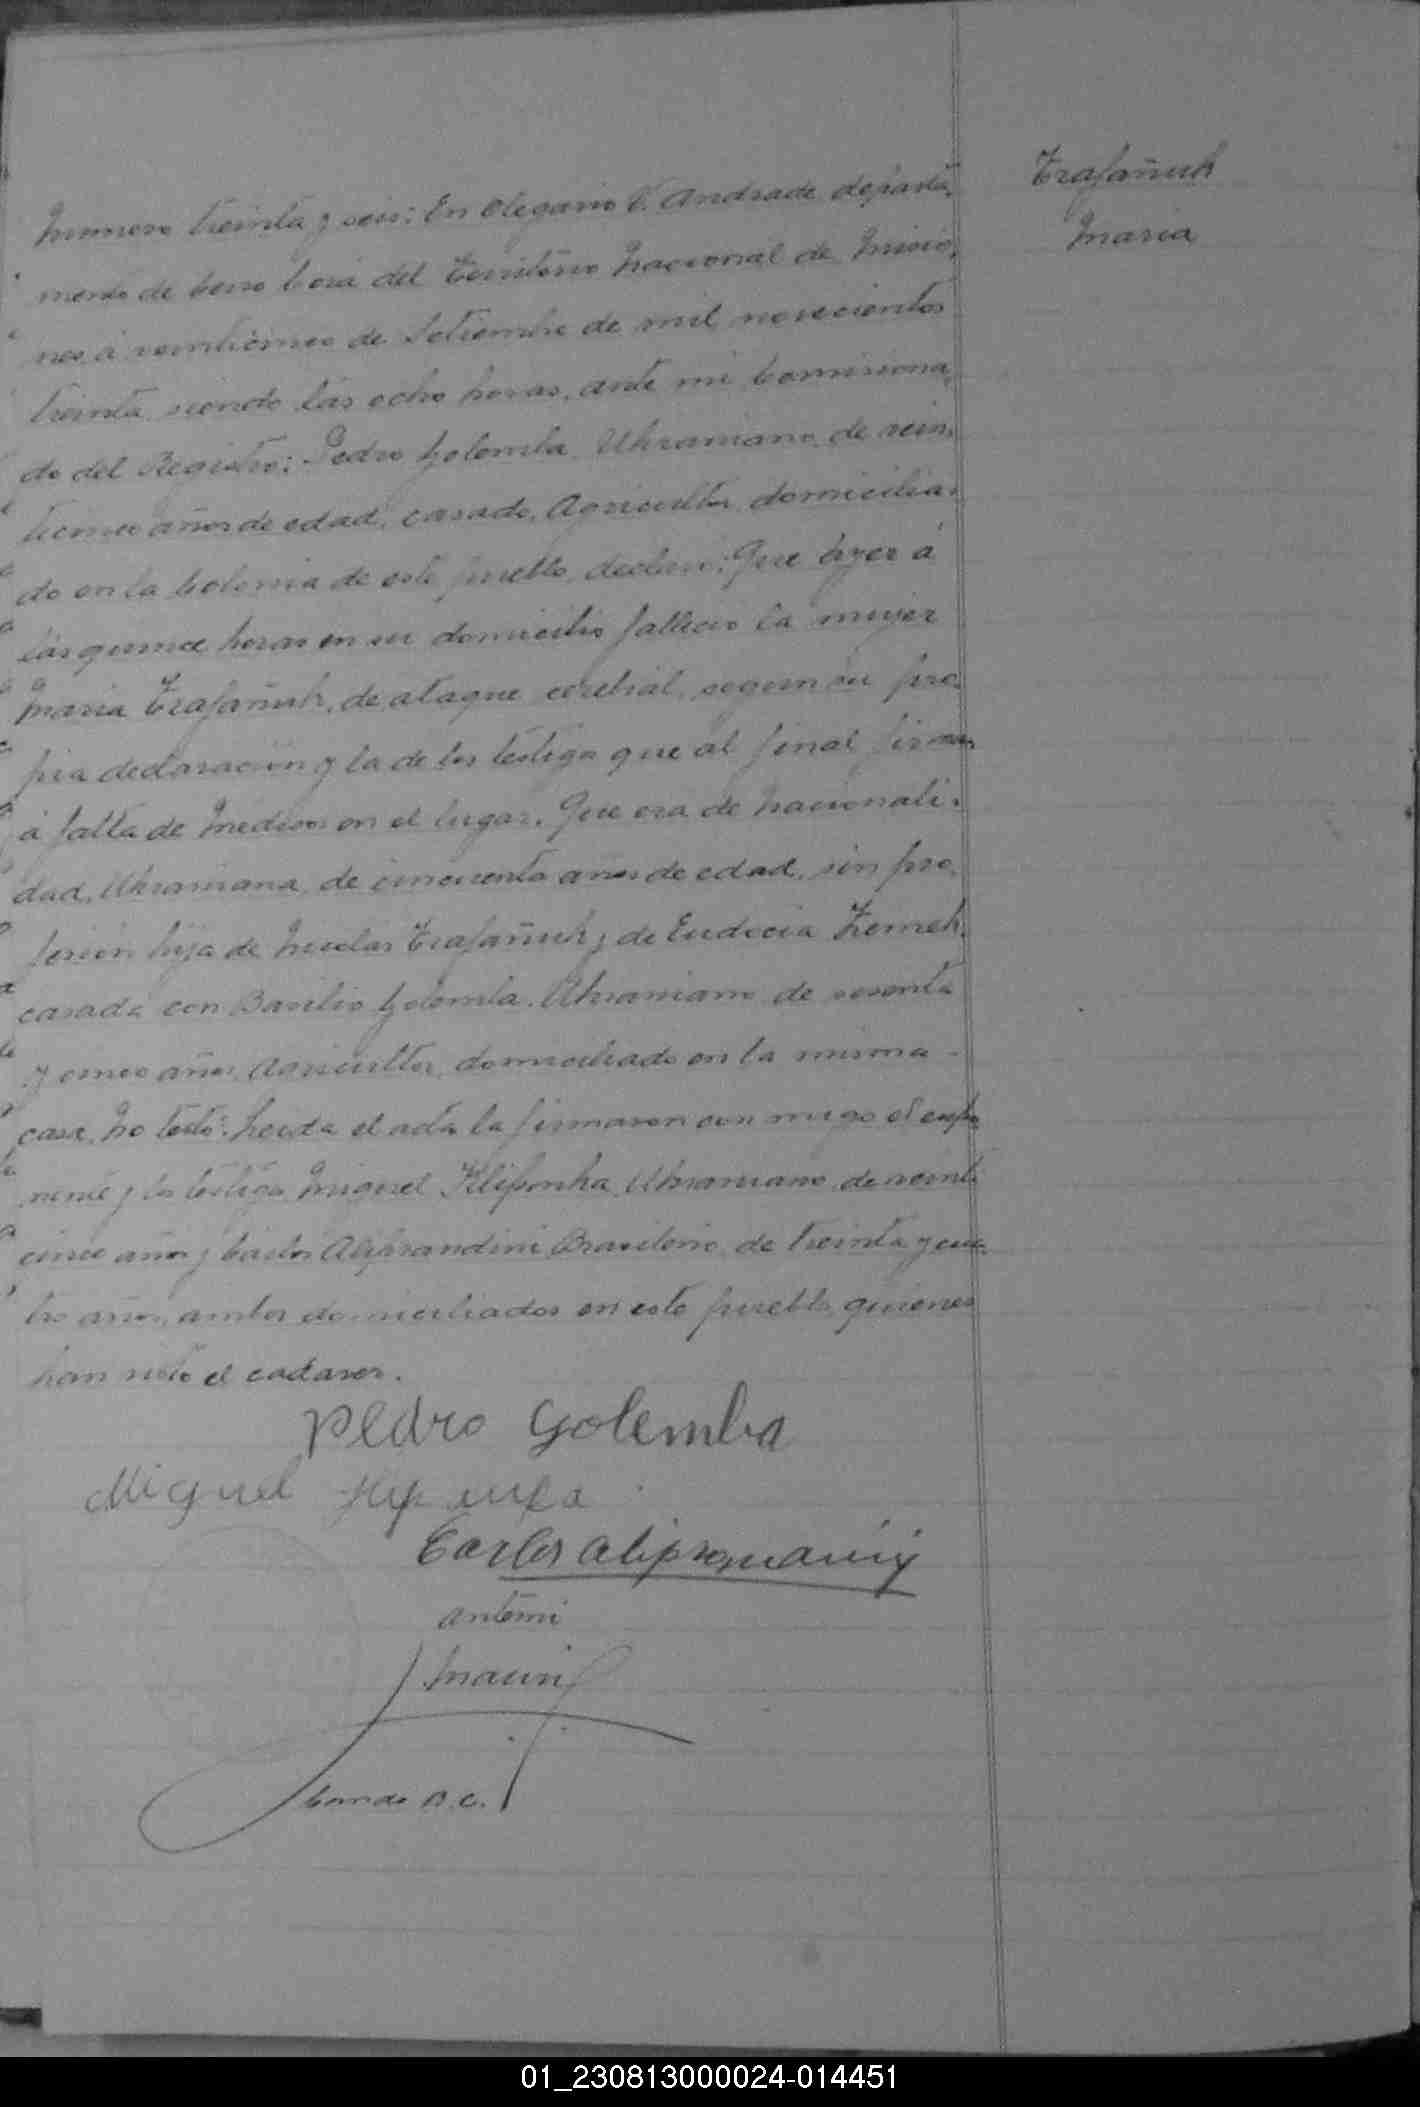 Trafañuk
Maria
Numero treinta y seis: En Olegario V. Andrade departa
mento de Cerro Corá del Territorio Nacional de Misio,
nes á veinticinco de Setiembre de mil novecientos
treinta siendo las ocho horas, ante mi Comisiona,
do del Registro: Pedro Golemba, Ukraniano, de vein,
ticinco años de edad, casado, Agricultor, domicilia,
do en la Colonia de este pueblo, declaró: Que ayer á
las quince horas en su domicilio falleció la mujer
Maria Trafañuk, de ataque cerebral, segun su pro,
pia declaración y la de los testigos que al final firman
á falta de Médicos en el lugar. Que era de Nacionali,
dad, Ukraniana, de cincuenta años de edad, sin pro,
fesión hija de Nicolas Trafañuk y de Eudocia
casada con Basilio Golemba, Ukraniano de sesenta
y cinco años, Agricultor, domiciliado en la misma
casa, No testó: Leida el acta la firmaron con migo el expo
nente y los testigos Miguel Ukraniano, de veinti
cinco años y Carlos Aliprandini Brasilero, de treinta y cua,
tro años, ambos domiciliados en este pueblo, quienes
han visto el cadaver.
Pedro Golemba
Miguel
Carlos Aliprandini
Antemi
Comdo R.C.
01_230813000024-014451